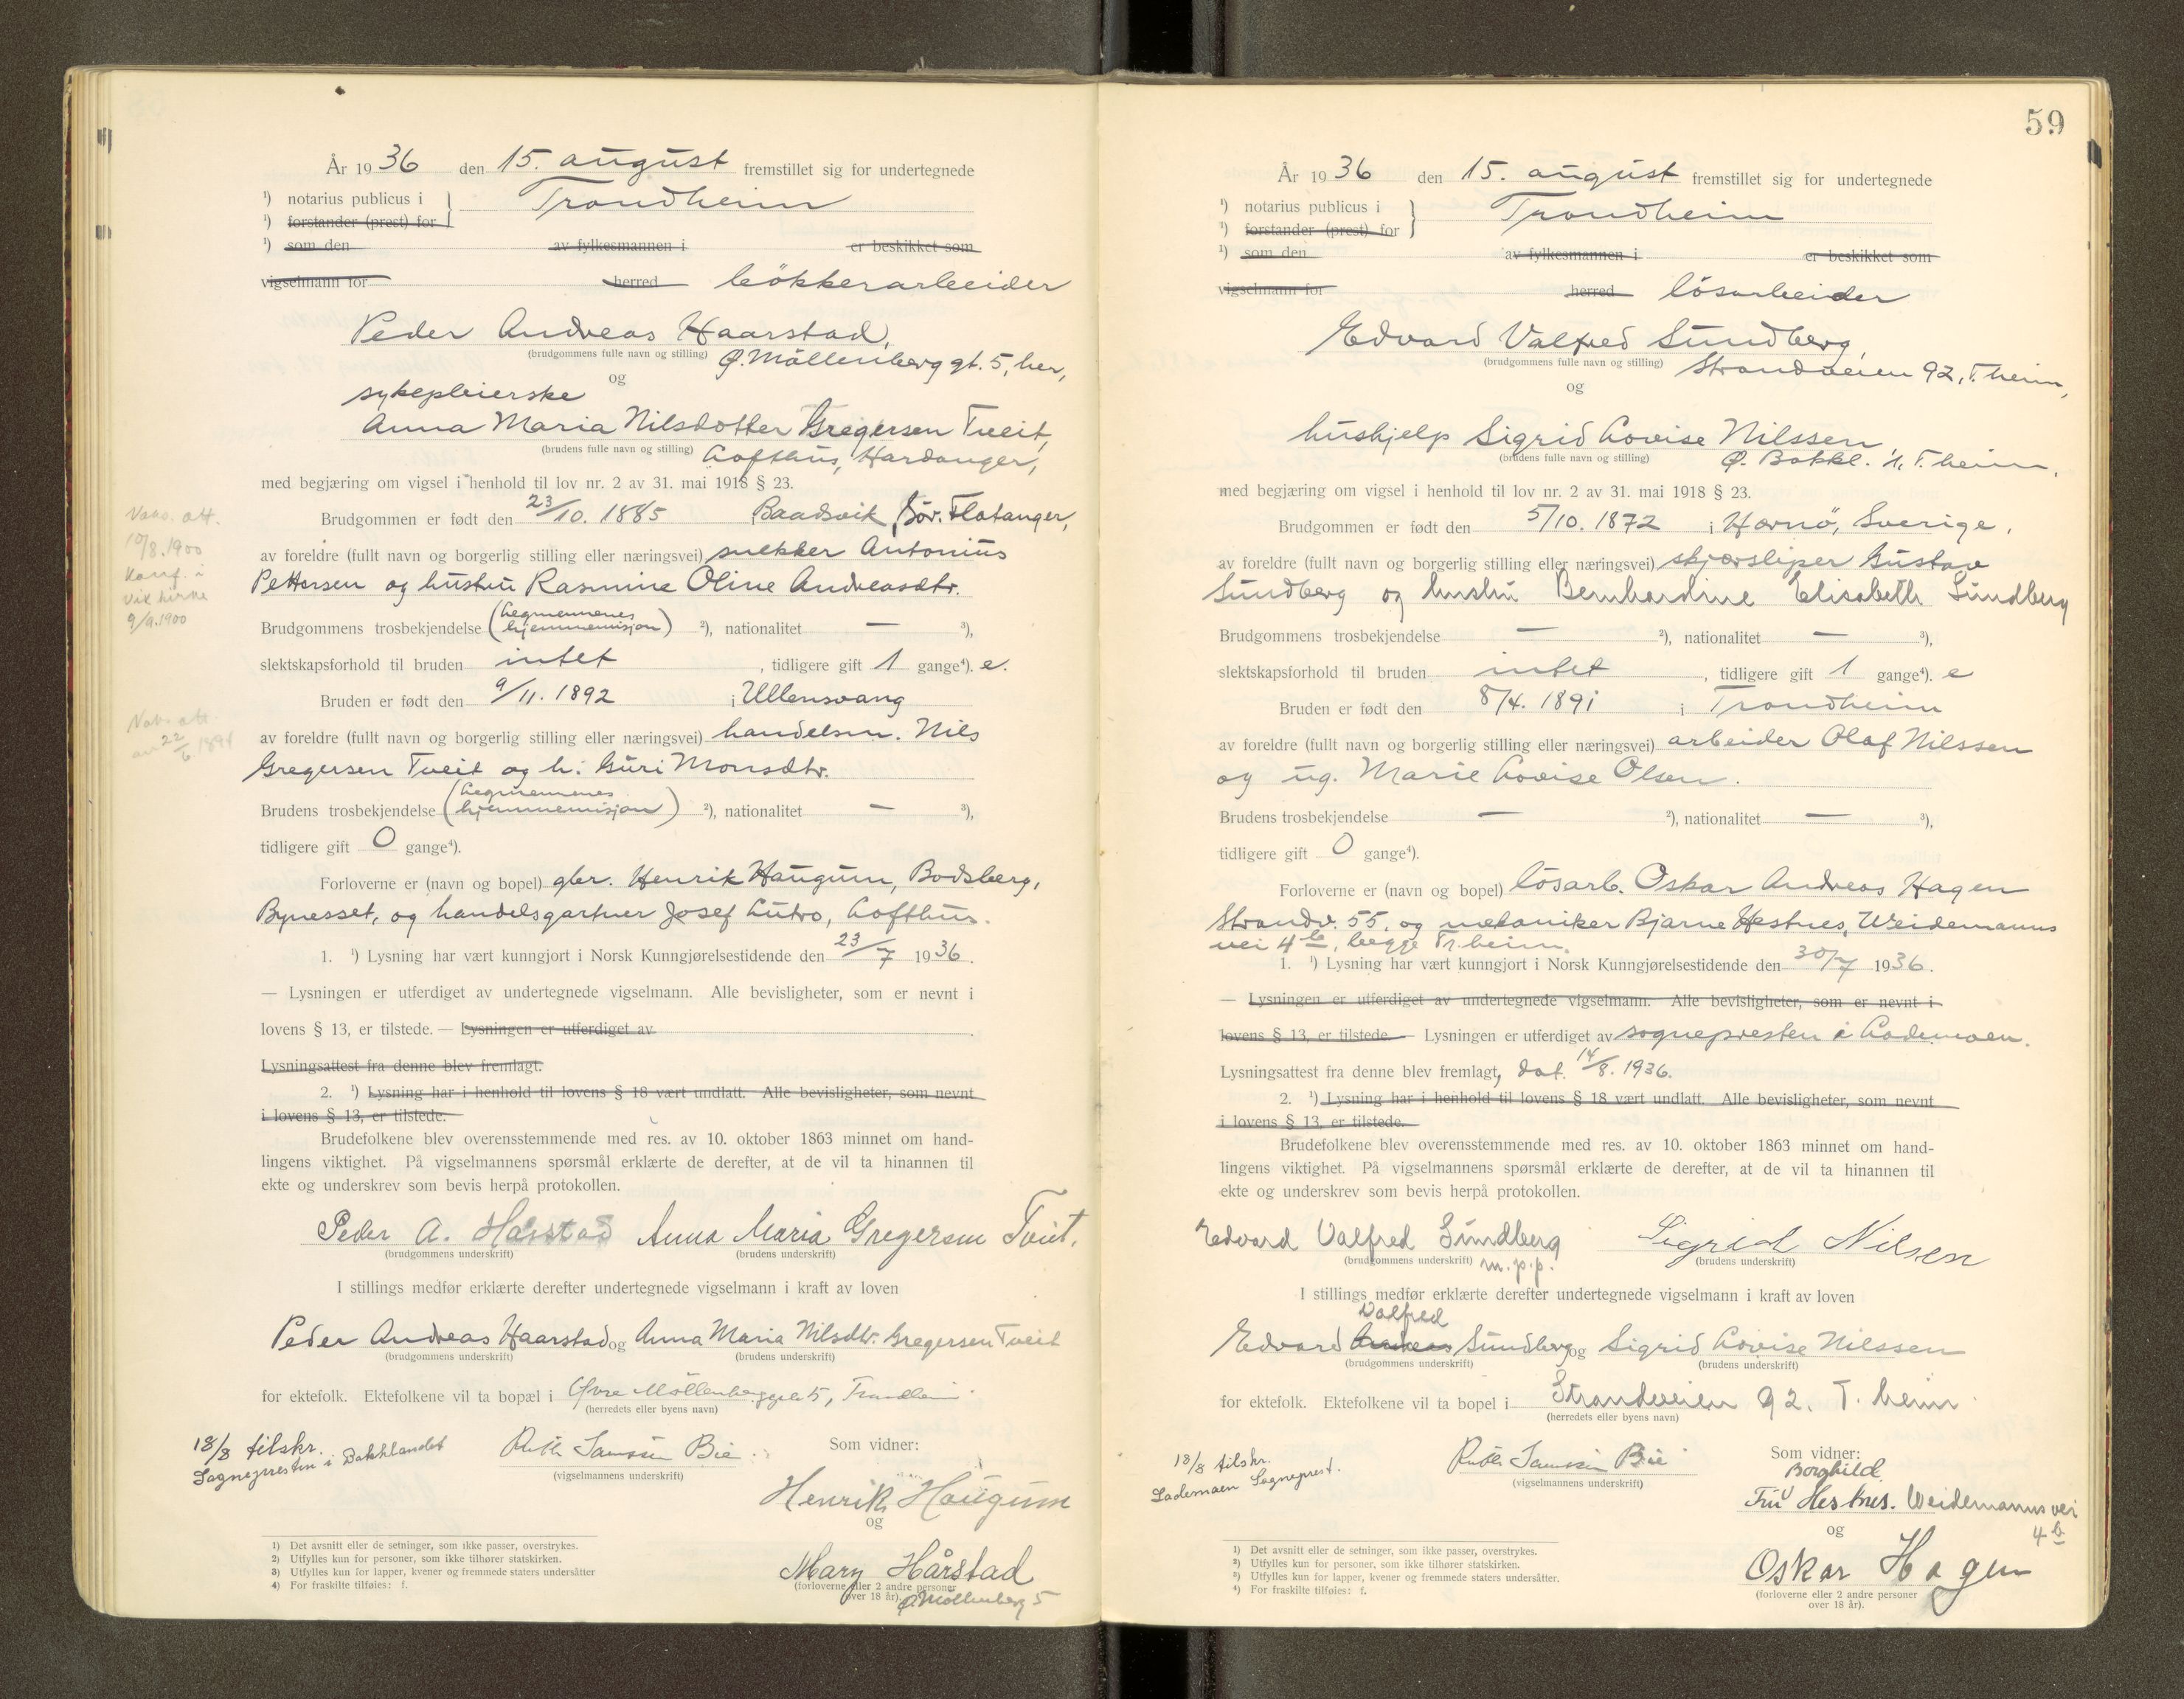 År 1936 den 15. august fremstillet sig for undertegnede
¹) notarius publicus i Trondheim
¹) forstander (prest) for
¹) som den av fylkesmannen i er beskikket som
vigselmann for herred bökkerarbeider
Peder Andreas Haarstad,
(brudgommens fulle navn og stilling) Ø. Möllenberg gt. 5, her,
og
sykepleierske
Anna Maria Nilsdotter Gregersen Tveit,
(brudens fulle navn og stilling) Lofthus, Hardanger,
med begjæring om vigsel i henhold til lov nr. 2 av 31. mai 1918 § 23.
Brudgommen er født den 23/10. 1885 Baadsvik, Sör. Flatanger,
av foreldre (fullt navn og borgerlig stilling eller næringsvei) snekker Antonius
Pettersen og hustru Rasmine Oline Andreasdtr.
Brudgommens trosbekjendelse (Legmennenes hjemmemisjon) ²), nationalitet — ³),
slektskapsforhold til bruden intet, tidligere gift 1 gange⁴). e.
Bruden er født den 9/11. 1892 i Ullensvang
av foreldre (fullt navn og borgerlig stilling eller næringsvei) handelsm. Nils
Gregersen Tveit og h. Guri Monsdtr.
Brudens trosbekjendelse (Legmennenes hjemmemisjon) ²), nationalitet — ³),
tidligere gift 0 gange⁴).
Forloverne er (navn og bopel) gbr. Henrik Haugum, Bodsberg,
Bynesset, og handelsgartner Josef Lutro, Lofthus.
1. ¹) Lysning har vært kunngjort i Norsk Kunngjørelsestidende den 23/7 1936.
— Lysningen er utferdiget av undertegnede vigselmann. Alle bevisligheter, som er nevnt i
lovens § 13, er tilstede. — Lysningen er utferdiget av
Lysningsattest fra denne blev fremlagt.
2. ¹) Lysning har i henhold til lovens § 18 vært undlatt. Alle bevisligheter, som nevnt
i lovens § 13, er tilstede.
Brudefolkene blev overensstemmende med res. av 10. oktober 1863 minnet om hand-
lingens viktighet. På vigselmannens spørsmål erklærte de derefter, at de vil ta hinannen til
ekte og underskrev som bevis herpå protokollen.
Peder A. Harstad Anna Maria Gregersen Tveit.
(brudgommens underskrift) (brudens underskrift)
I stillings medfør erklærte derefter undertegnede vigselmann i kraft av loven
Peder Andreas Haarstad og Anna Maria Nilsdtr. Gregersen Tveit
(brudgommens underskrift) (brudens underskrift)
for ektefolk. Ektefolkene vil ta bopæl i Øvre Möllenberggate 5, Trondheim
(herredets eller byens navn)
18/8 tilskr.
Sogneprresten i Bakklandet
Vacc. att.
10/8.1900
Konf. i
Vik kirke
9/9.1900
Vacc att
22/6 189
Som vidner:
(vigselmannens underskrift)
Henrik Haugum
og
Mary Hårstad
(forloverne eller 2 andre personer
over 18 år). Ø. Möllenberg 5
1) Det avsnitt eller de setninger, som ikke passer, overstrykes.
2) Utfylles kun for personer, som ikke tilhører statskirken.
3) Utfylles kun for lapper, kvener og fremmede staters undersåtter
4) For fraskilte tilføies: f.
59
År 1936 den 15. august fremstillet sig for undertegnede
¹) notarius publicus i Trondheim
¹) forstander (prest) for
¹) som den av fylkesmannen i er beskikket som
vigselmann for herred lösarbeider
Edvard Valfred Sundberg,
(brudgommens fulle navn og stilling) Strandveien 92, T.heim,
og
hushjelp Sigrid Lovise Nilssen,
(brudens fulle navn og stilling) Ø. Bakkl. 11, T.heim,
med begjæring om vigsel i henhold til lov nr. 2 av 31. mai 1918 § 23.
Brudgommen er født den 5/10. 1872 i Hernö, Sverige,
av foreldre (fullt navn og borgerlig stilling eller næringsvei) skjærsliper Gustav
Sundberg og hustru Bernhardine Elisabeth Sundberg
Brudgommens trosbekjendelse — ²), nationalitet — ³),
slektskapsforhold til bruden intet, tidligere gift 1 gange⁴). e
Bruden er født den 8/4. 1891 i Trondheim
av foreldre (fullt navn og borgerlig stilling eller næringsvei) arbeider Olaf Nilssen
og ug. Marie Lovise Olsen.
Brudens trosbekjendelse — ²), nationalitet — ³),
tidligere gift 0 gange⁴).
Forloverne er (navn og bopel) lösarb. Oskar Andreas Hagen
Strandv. 55, og mekaniker Bjarne Hestnes, Weidemanns
vei 4 b, begge Tr.heim.
1. ¹) Lysning har vært kunngjort i Norsk Kunngjørelsestidende den 30/7 1936.
— Lysningen er utferdiget av undertegnede vigselmann. Alle bevisligheter, som er nevnt i
lovens § 13, er tilstede. — Lysningen er utferdiget av sognepresten i Lademoen.
Lysningsattest fra denne blev fremlagt, dat. 14/8. 1936.
2. ¹) Lysning har i henhold til lovens § 18 vært undlatt. Alle bevisligheter, som nevnt
i lovens § 13, er tilstede.
Brudefolkene blev overensstemmende med res. av 10. oktober 1863 minnet om hand-
lingens viktighet. På vigselmannens spørsmål erklærte de derefter, at de vil ta hinannen til
ekte og underskrev som bevis herpå protokollen.
Edvard Valfred Sundberg Sigrid Nilsen
(brudgommens underskrift) m.p.p. (brudens underskrift)
I stillings medfør erklærte derefter undertegnede vigselmann i kraft av loven
Valfred
Edvard Sundberg og Sigrid Lovise Nilssen
(brudgommens underskrift) (brudens underskrift)
for ektefolk. Ektefolkene vil ta bopel i Strandveien 92. T.heim
(herredets eller byens navn)
18/8 tilskr.
Lademoen Sogneprest.
(vigselmannens underskrift)
Som vidner:
Borghild
Fru Hestnes. Weidemannsvei
4 b
og
Oskar Hagen
(forloverne eller 2 andre personer
over 18 år).
1) Det avsnitt eller de setninger, som ikke passer, overstrykes.
2) Utfylles kun for personer, som ikke tilhører statskirken.
3) Utfylles kun for lapper, kvener og fremmede staters undersåtter.
4) For fraskilte tilføies: f.